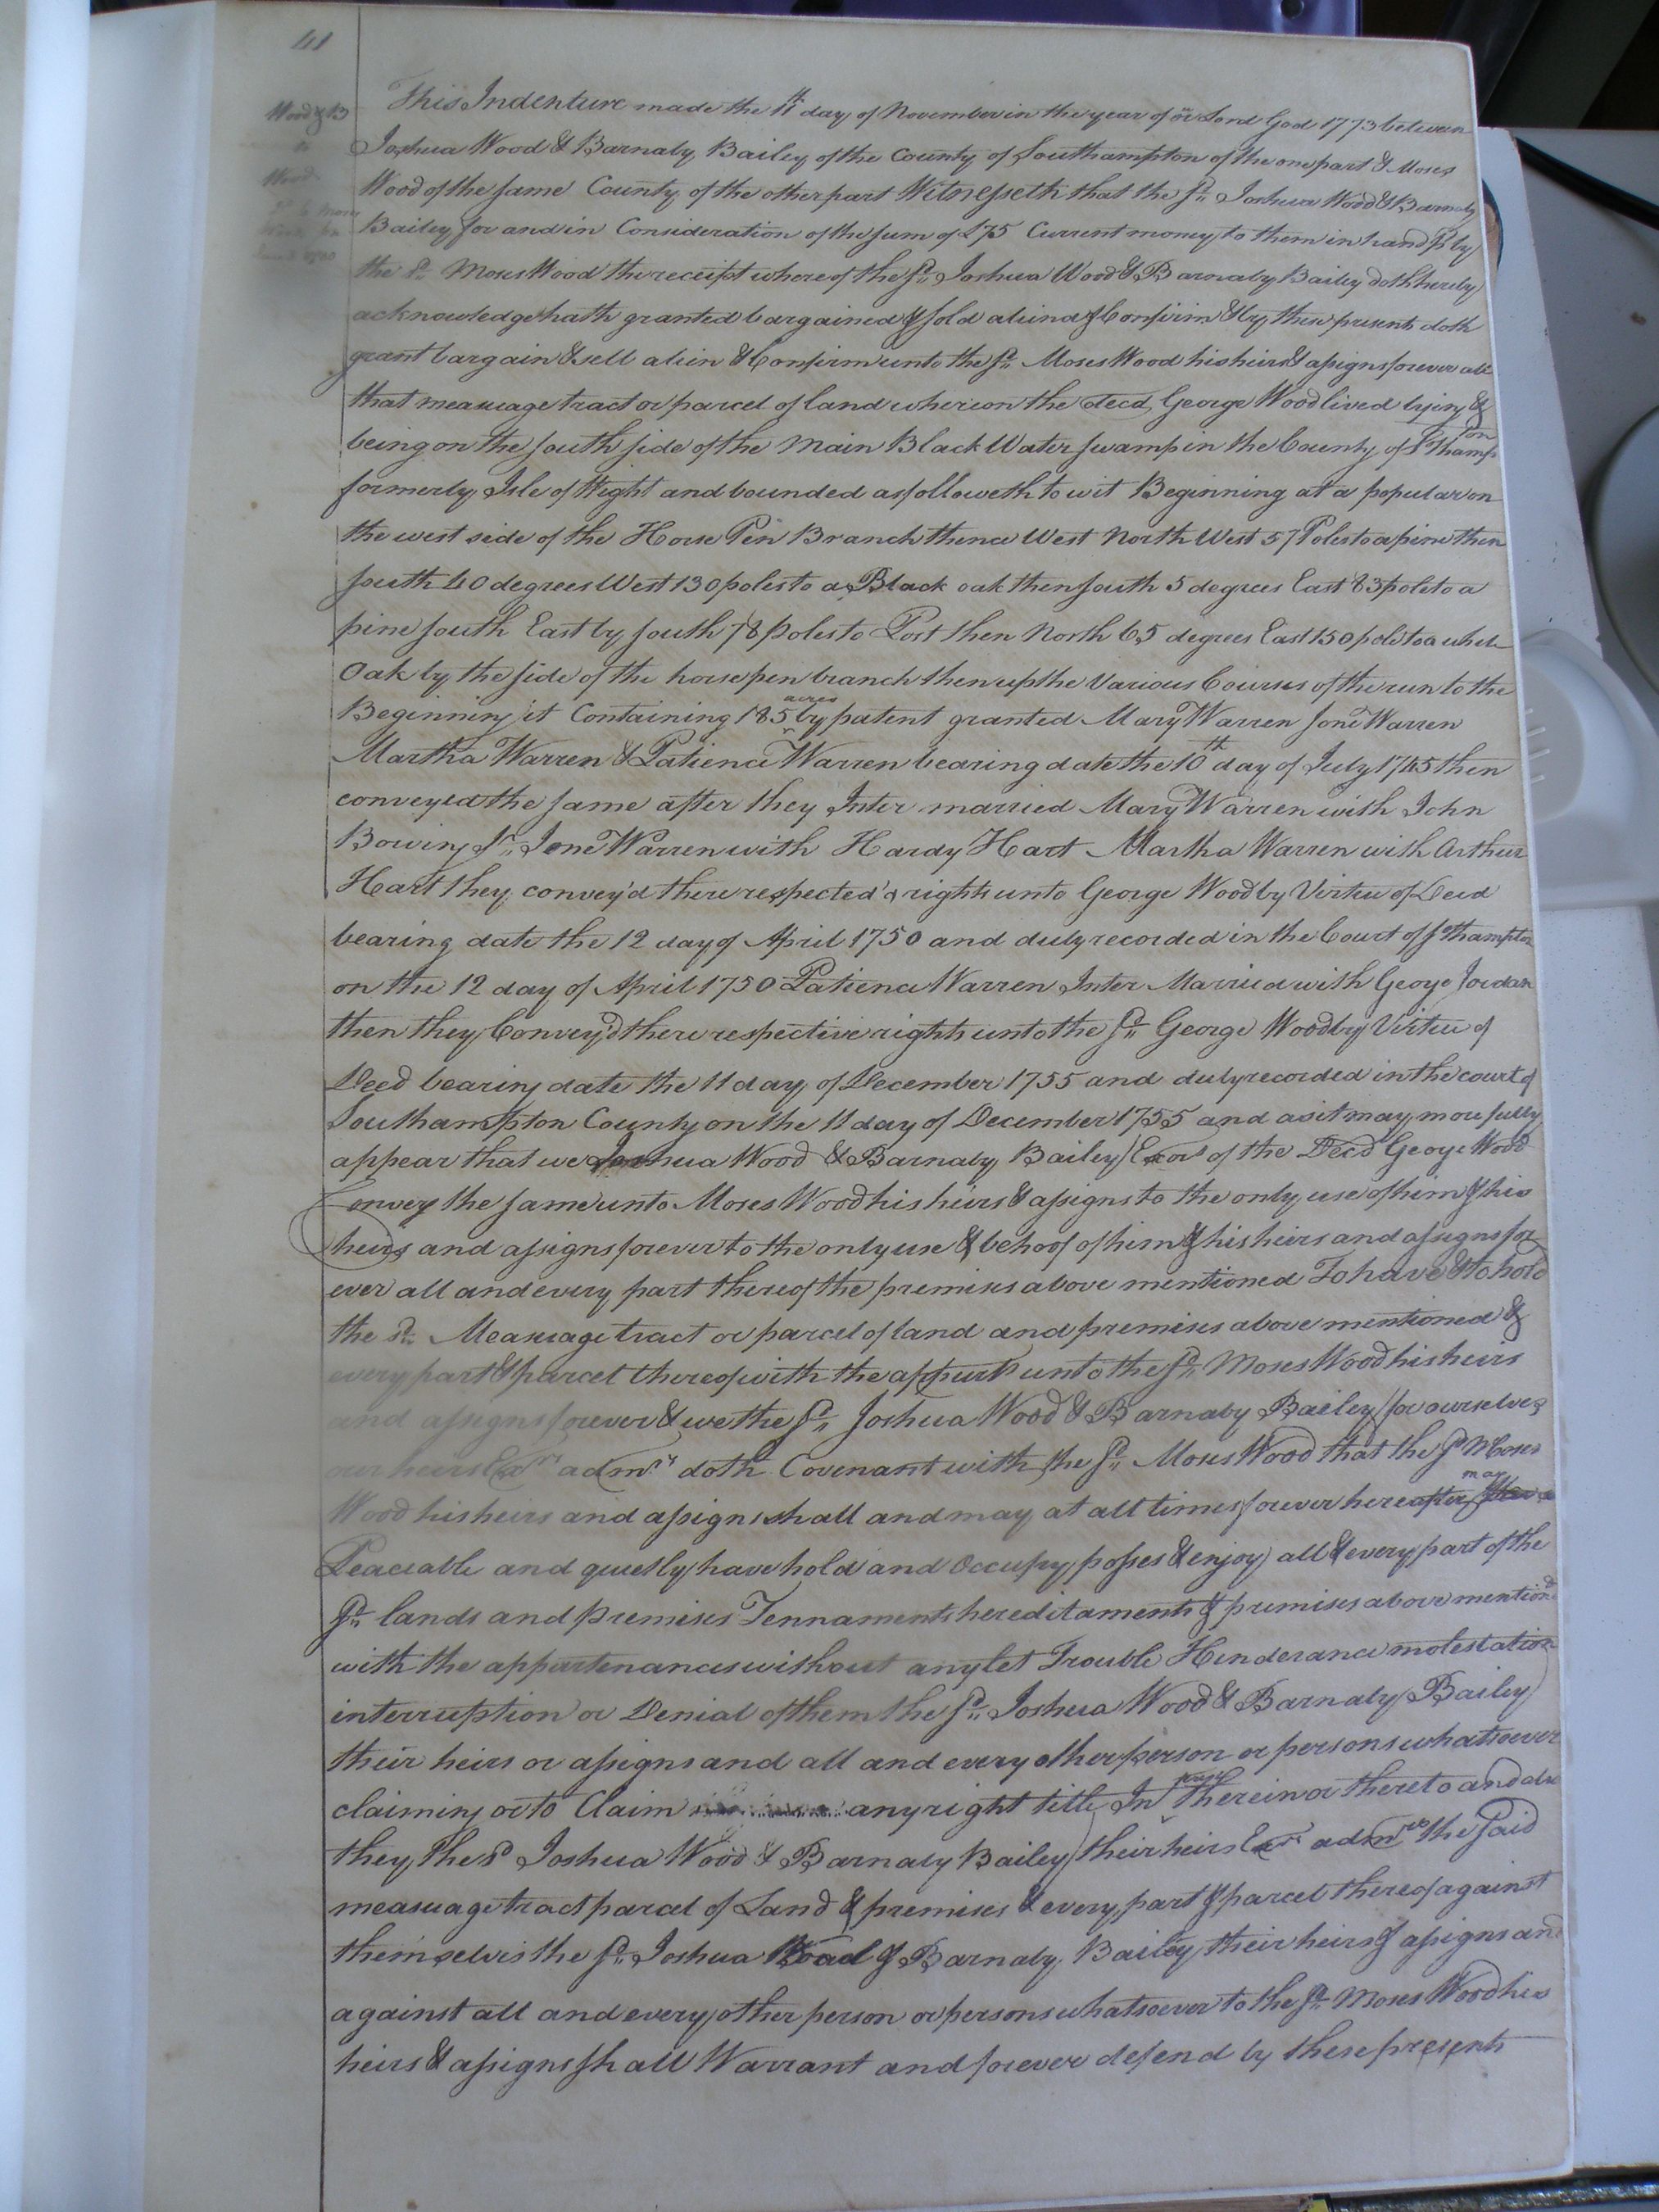 41
Wood & B
to
Wood
This Indenture made the 11th day of November in the year of our Lord God 1773 between
Joshua Wood & Barnaby Bailey of the County of Southampton of the one part & Moses
Wood of the same County of the other part Witnesseth that the sd Joshua Wood & Barnaby
Bailey for and in Consideration of the sum of £75 Current money to them in hand pd by
the sd Moses Wood the receipt whereof the sd Joshua Wood & Barnaby Bailey doth hereby
acknowledge hath granted bargained & sold aliend & Confirm & by these presents doth
grant bargain & sell alien & Confirm unto the sd Moses Wood his heirs & assigns forever all
that meassuage tract or parcel of land whereon the decd George Wood lived lying &
being on the south side of the Main Black Water swamp in the County of Sothampton
formerly Isle of Wight and bounded as followeth to wit Beginning at a popular on
the west side of the Horse Pen Branch thence West North West 57 Poles to a pine then
south 40 degrees West 130 poles to a Black oak then south 5 degrees East 83 poles to a
pine south East by south 78 poles to Post then North 65 degrees East 150 poles to a white
Oak by the side of the horse pen branch then up the Various Courses of the run to the
Beginning it Containing 185 acres by patent granted Mary Warren Jone Warren
Martha Warren & Patience Warren bearing date the 10th day of July 1745 then
conveyed the same after they Inter married Mary Warren with John
Bowing Sr Jone Warren with Hardy Hart Martha Warren with Arthur
Hart they convey'd there respected rights unto George Wood by Virtue of Deed
bearing date the 12 day of April 1750 and duly recorded in the Court of Sothampton
on the 12 day of April 1750 Patience Warren Inter Married with Geoye Jordan
then they Convey'd there respective rights unto the sd George Wood by Virtue of
Deed bearing date the 11 day of December 1755 and duly recorded in the court of
Southampton County on the 11 day of December 1755 and as it may more fully
appear that we Joshua Wood & Barnaby Bailey Exors of the Decd Geoye Wood
Convey the same unto Moses Wood his heirs & assigns to the only use of him & his
heirs and assigns forever to the only use & behoof of him & his heirs and assigns for
ever all and every part thereof the premises above mentioned To have & to hold
the sd Meassuage tract or parcel of land and premises above mentioned &
every part & parcel thereof with the appurts unto the sd Moses Wood his heirs
and assigns forever & we the sd Joshua Wood & Barnaby Bailey for ourselves
our heirs Exrs admrs doth Covenant with the sd Moses Wood that the sd Moses
Wood his heirs and assigns shall and may at all times forever hereafter may
Peaceable and quietly have hold and Occupy posses & enjoy all & every part of the
sd lands and premises Tennaments hereditaments & premises above mentiond
with the appurtenances without any let Trouble Henderance molestation
interruption or Denial of them the sd Joshua Wood & Barnaby Bailey
their heirs or assigns and all and every other person or persons whatsoever
claiming or to Claim any right title In therein or thereto and also
they the sd Joshua Wood & Barnaby Bailey their heirs Exrs admrs the said
meassuage tract parcel of Land & premises & every part & parcel thereof against
themselves the sd Joshua Wood & Barnaby Bailey their heirs & assigns and
against all and every other person or persons whatsoever to the sd Moses Wood his
heirs & assigns shall Warrant and forever defend by these presents